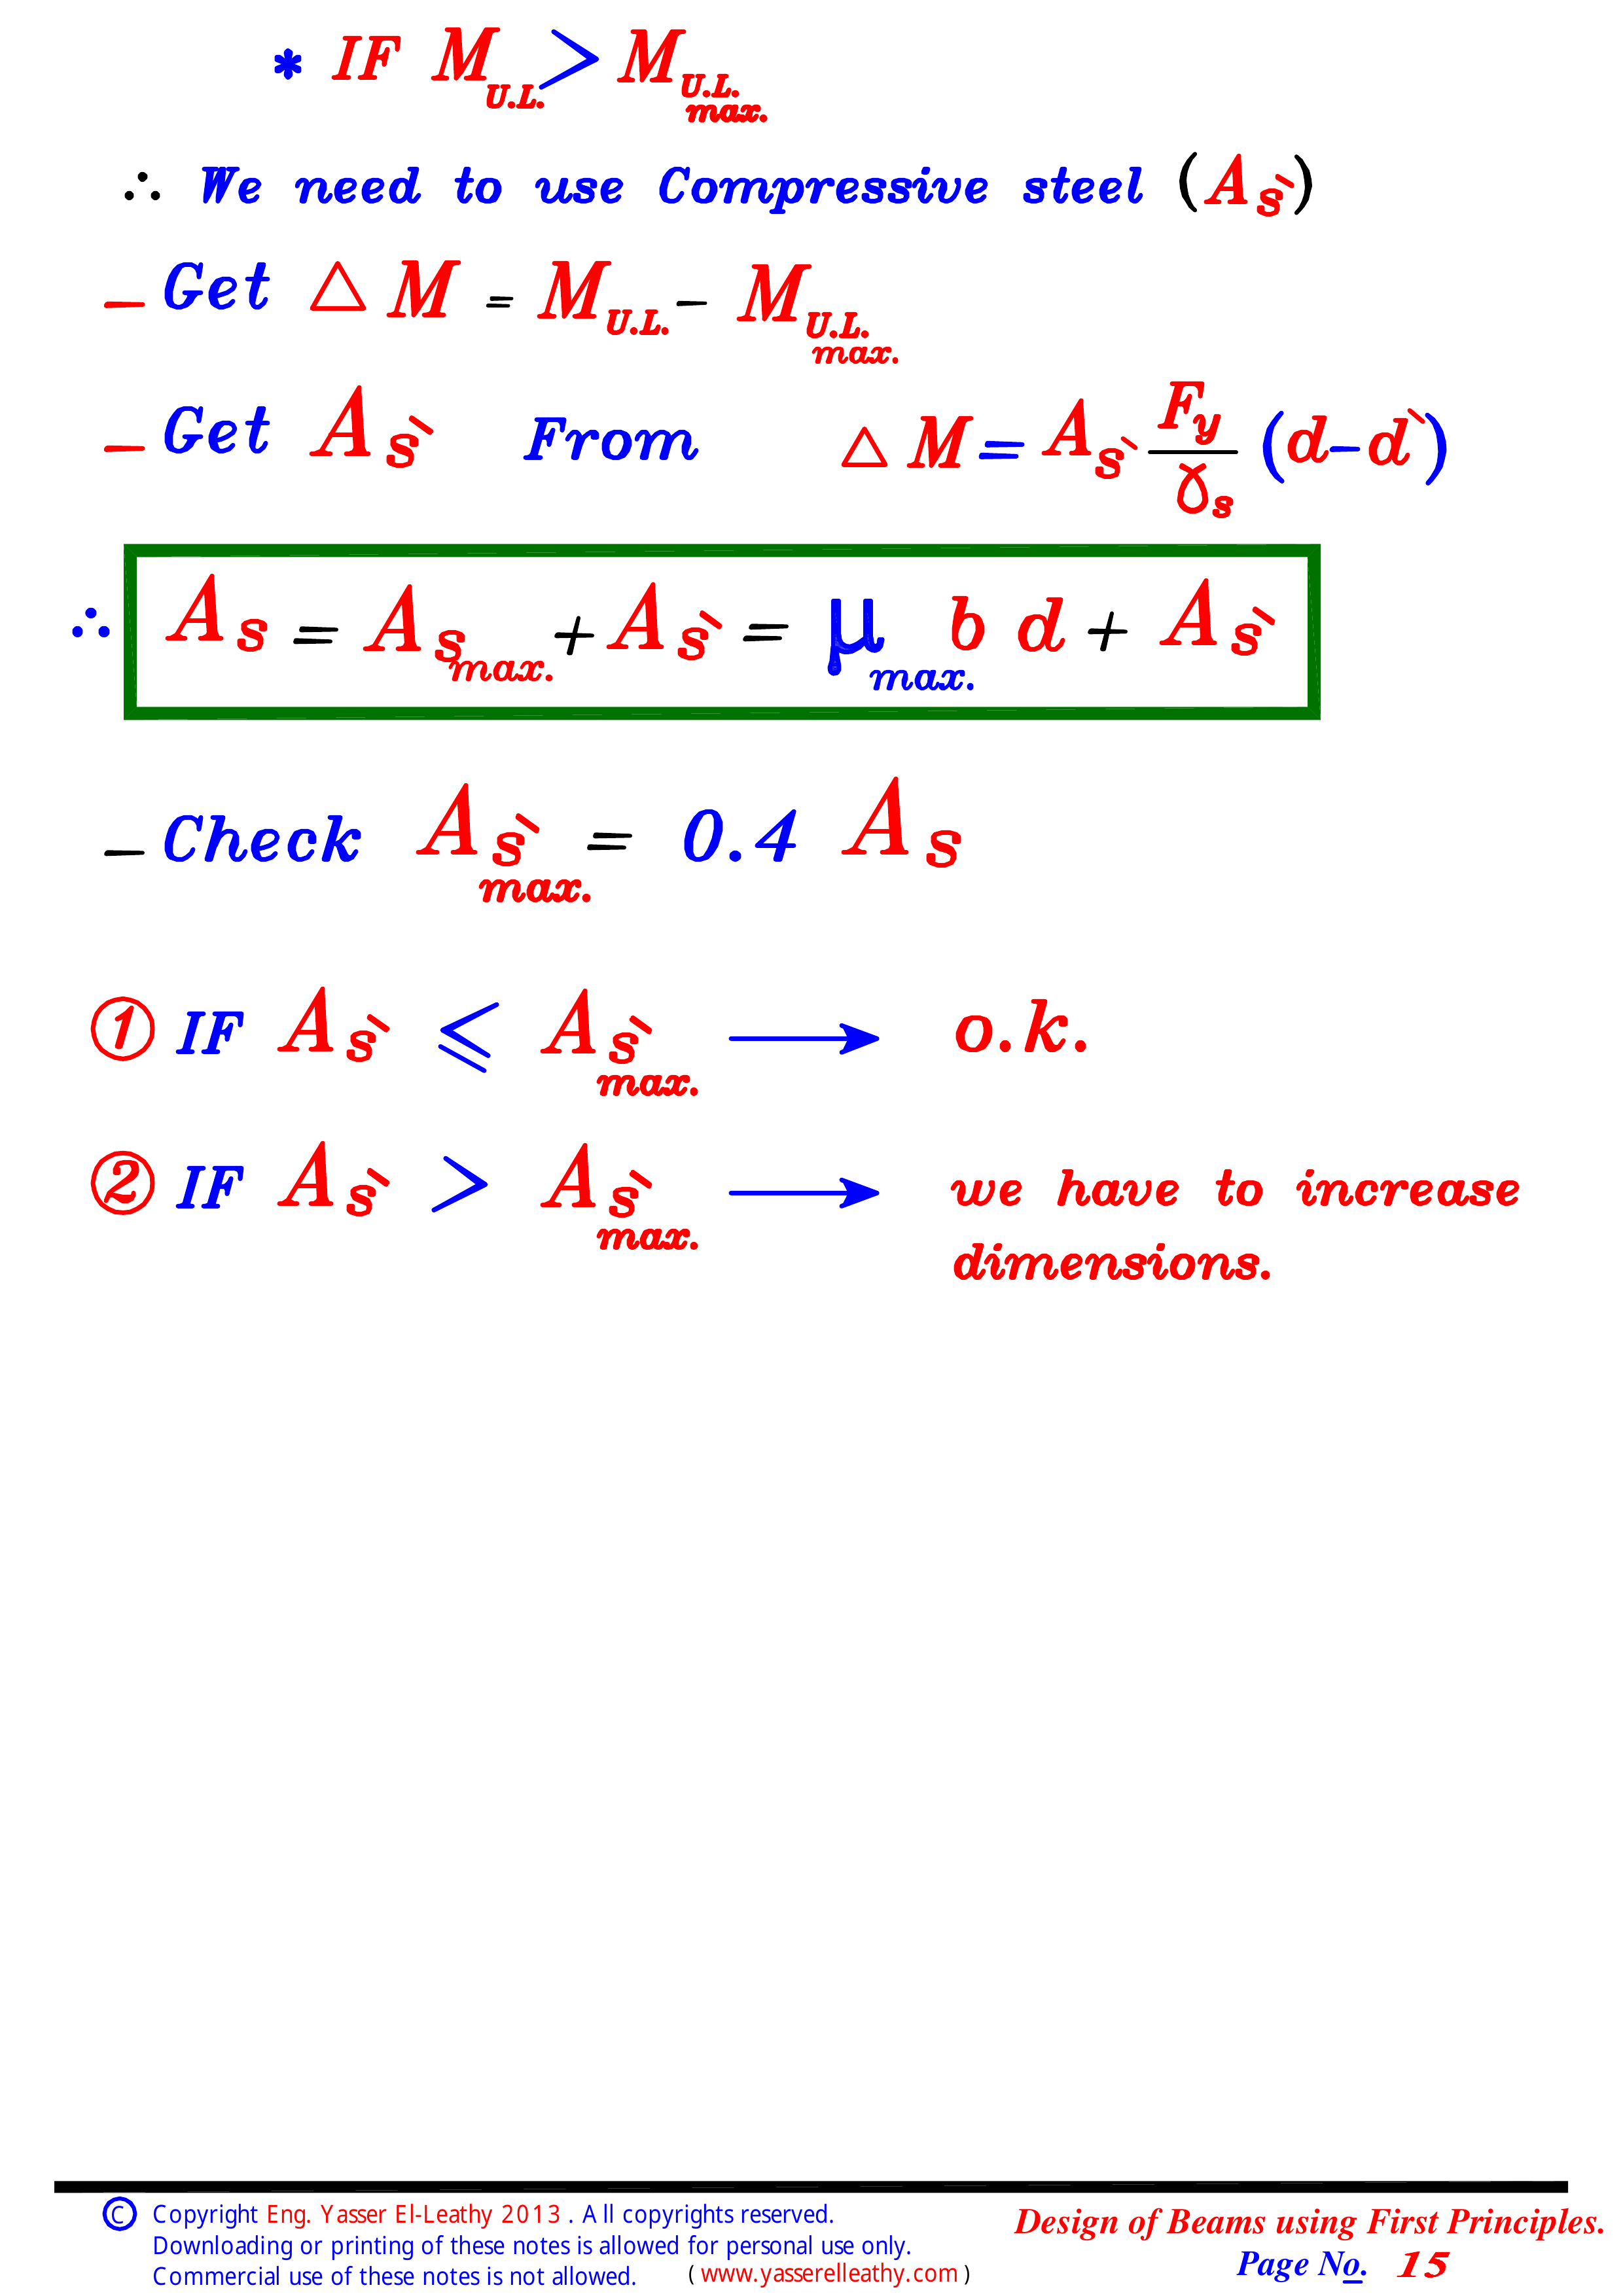 * IF M U.L. > M U.L. max.
∴ We need to use Compressive steel (As`)
- Get △M = M U.L. - M U.L. max.
- Get As` From △M = As` Fy/γs (d-d`)
∴ As = As max. + As` = μ max. b d + As`
- Check As` max. = 0.4 As
① IF As` ⩽ As` max. → o.k.
② IF As` > As` max. → we have to increase
dimensions.
© Copyright Eng. Yasser El-Leathy 2013 . All copyrights reserved.
Downloading or printing of these notes is allowed for personal use only.
Commercial use of these notes is not allowed. ( www.yasserelleathy.com )
Design of Beams using First Principles.
Page No. 15